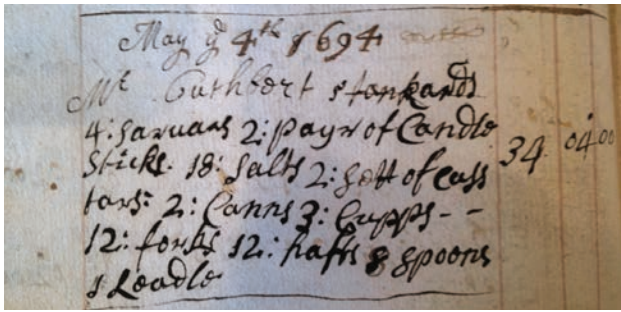 May ye 4th 1694
Mr Cuthbert stankards
4: saruars 2: payr of Candle
sticks. 18: salts 2: sett of cass
tars: 2: Canns 3: Cupps - - 34 04 00
12: forks 12: hafts 8 spoons
1 Leadle